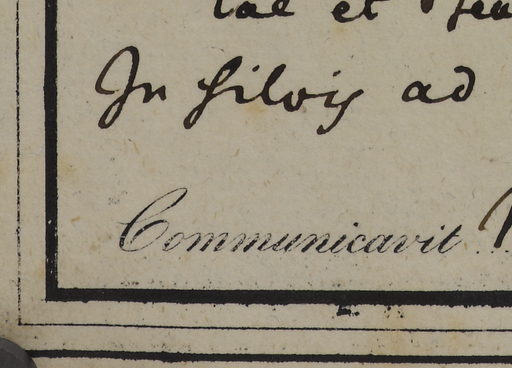 et
In silvis ad
Communicavit